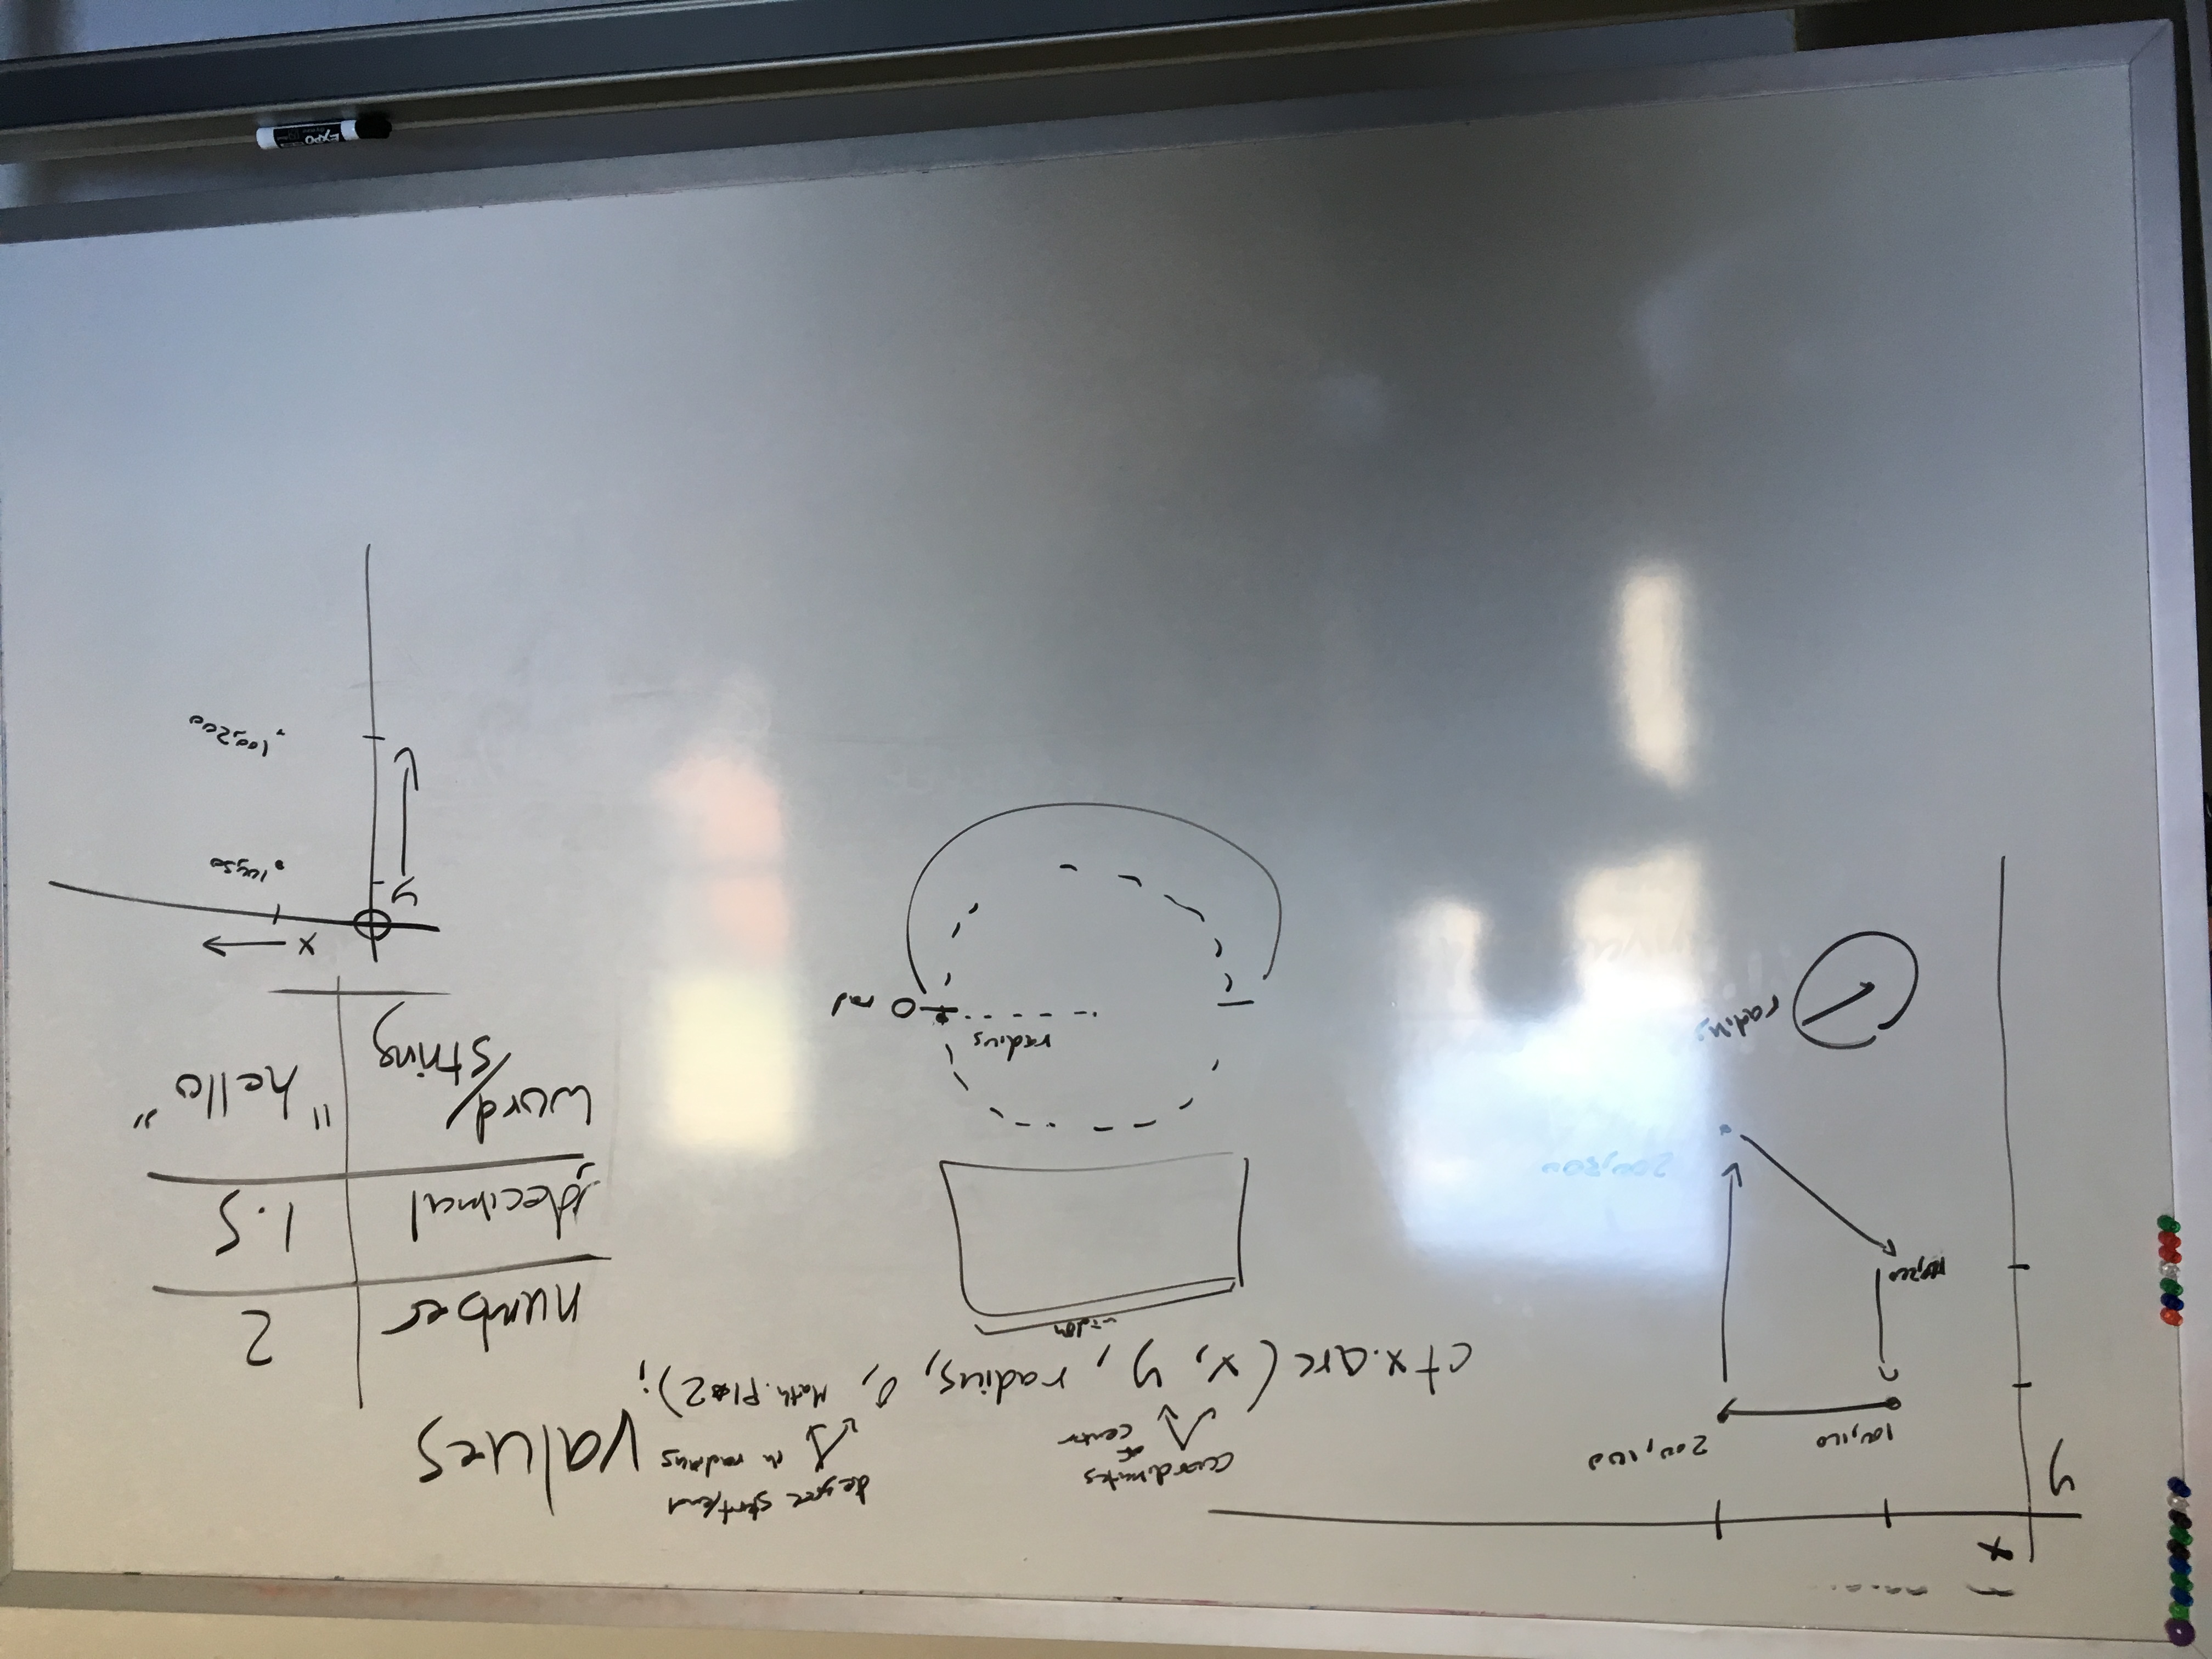 x
y
100,100
200,100
100,200
200,300
radius
coordinates
of
center
degree start/end
in radians
ctx.arc(x, y, radius, 0, Math.PI*2);
width
radius
0 rad
values
number 2
decimal 1.5
word/
string "hello"
x
y
100,50
100,200
EXPO